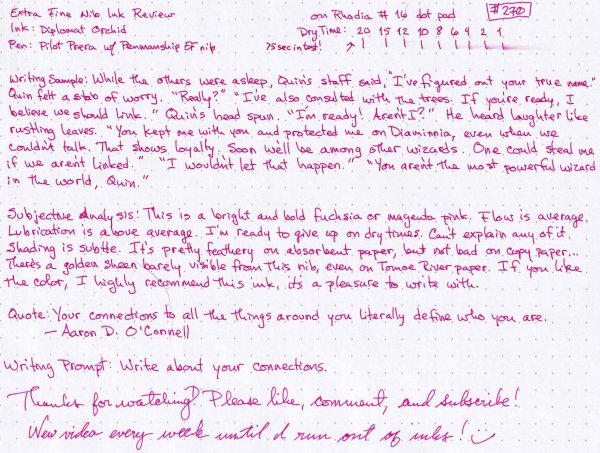 Extra Fine Nib Ink Review on Rhodia #16 dot pad #270
Ink: Diplomat Orchid Dry Time: 20 15 12 10 8 6 4 2 1
Pen: Pilot Prera w/ Penmanship EF nib 75 sec in test!
Writing Sample: While the others were asleep, Quin's staff said, "I've figured out your true name."
Quin felt a stab of worry. "Really?" "I've also consulted with the trees. If you're ready, I
believe we should link." Quin's head spun. "I'm ready! Aren't I?" He heard laughter like
rustling leaves. "You kept me with you and protected me on Diaminnia, even when we
couldn't talk. That shows loyalty. Soon we'll be among other wizards. One could steal me
if we aren't linked." "I wouldn't let that happen." "You aren't the most powerful wizard
in the world, Quin."
Subjective Analysis: This is a bright and bold fuchsia or magenta pink. Flow is average.
Lubrication is above average. I'm ready to give up on dry times. Can't explain any of it.
Shading is subtle. It's pretty feathery on absorbent paper, but not bad on copy paper...
There's a golden sheen barely visible from this nib, even on Tomoe River paper. If you like
the color, I highly recommend this ink, it's a pleasure to write with.
Quote: Your connections to all the things around you literally define who you are.
— Aaron D. O'Connell
Writing Prompt: Write about your connections.
Thanks for watching! Please like, comment, and subscribe!
New video every week until I run out of inks!